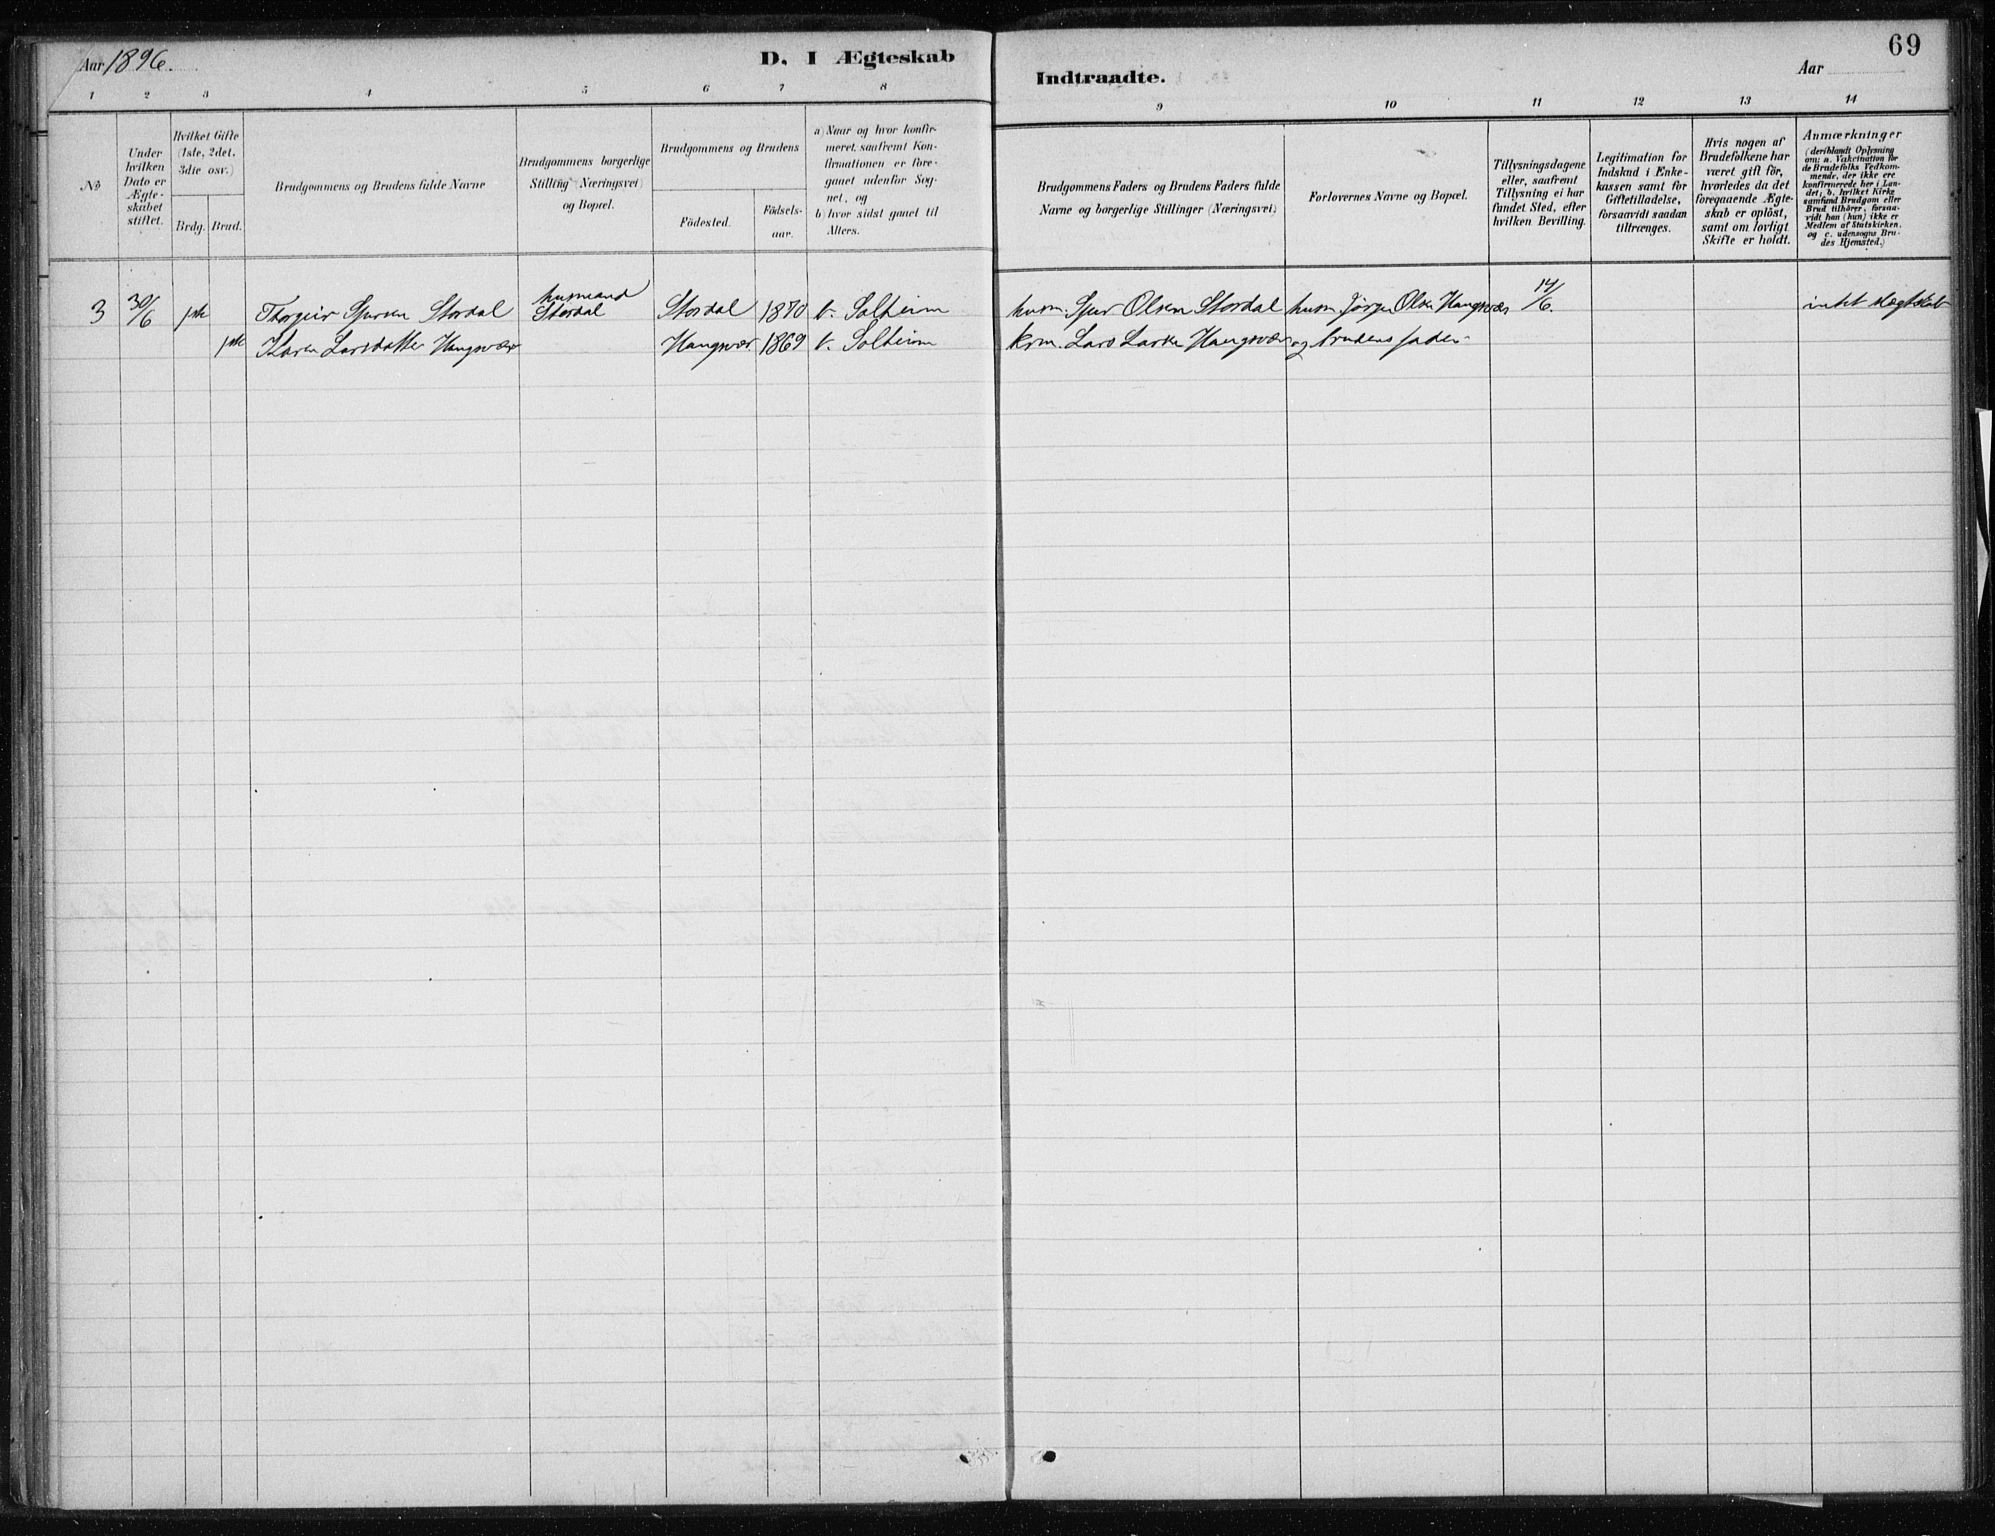 Aar 1896.
D. I Ægteskab
Indtraadte.
Aar
69
1 2 3 4 5 6 7 8 9 10 11 12 13 14
No
Under hvilken Dato er Ægteskabet stiftet.
Hvilket Gifte (1ste, 2det, 3die osv.)
Brdg. Brud.
Brudgommens og Brudens fulde Navne
Brudgommens borgerlige Stilling (Næringsvei) og Bopæl.
Brudgommens og Brudens
Födested.
Födselsaar.
a) Naar og hvor konfirmeret, saafremt Konfirmationen er foregaaet udenfor Sognet, og
b) hvor sidst gaaet til Alters.
Brudgommens Faders og Brudens Faders fulde Navne og borgerlige Stillinger (Næringsvei)
Forlovernes Navne og Bopæl.
Tillysningsdagene eller, saafremt Tillysning ei har fundet Sted, efter hvilken Bevilling.
Legitimation for Indskud i Enkekassen samt for Giftetilladelse, forsaavidt saadan tiltrænges.
Hvis nogen af Brudefolkene har været gift för, hvorledes da det foregaaende Ægteskab er oplöst, samt om lovligt Skifte er holdt.
Anmærkninger (deriblandt Oplysning om: a. Vakcination for de Brudefolks Vedkommende, der ikke ere konfirmerede her i Landet; b. hvilket Kirkesamfund Brudgom eller Brud tilhörer, forsaavidt han (hun) ikke er Medlem af Statskirken, og c. udensogns Brudes Hjemsted.)
3 30/6 1ste Thorgeir Sjursen Stordal husmand Stordal Stordal 1870 b. Solheim husm. Sjur Olsen Stordal husm. Jörgen Olsen Haugsvær 14/6. intet slægtskab
1ste Karen Larsdatter Haugsvær Haugsvær 1869 b. Solheim krm. Lars Larsen Haugsvær og brudens fader